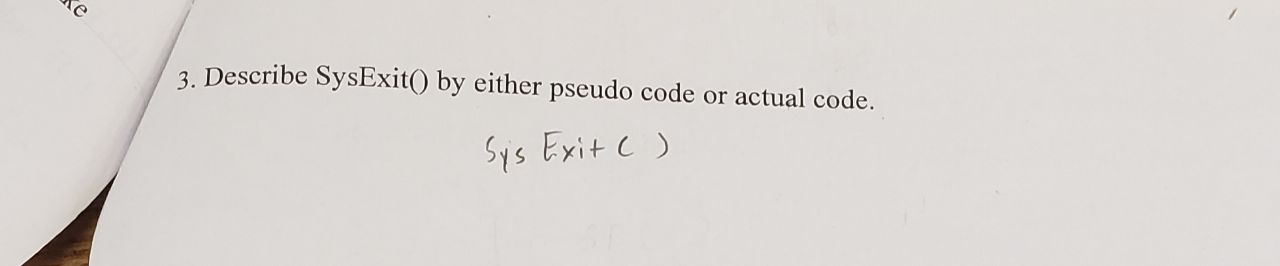 3. Describe SysExit() by either pseudo code or actual code.
Sys Exit ( )